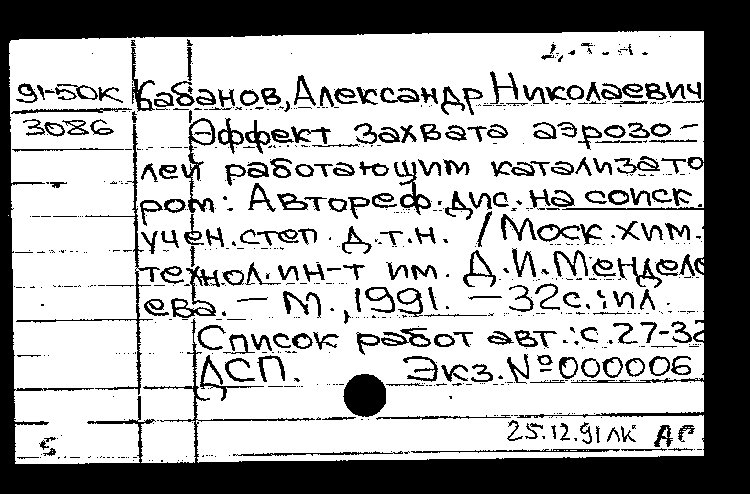 Д.Т.Н.
91-50К Кабанов, Александр Николаевич
3086 Эффект захвата аэрозо-
лей работающим катализато
ром: Автореф. дис. на соиск.
учен. степ. д.т.н. / Моск. хим.-
технол. ин-т им. Д.И. Менделе
ева. — М., 1991. — 32с.: ил.
Список работ авт.: с. 27-32
ДСП. Экз. № 000006
25.12.91 ЛК АС.